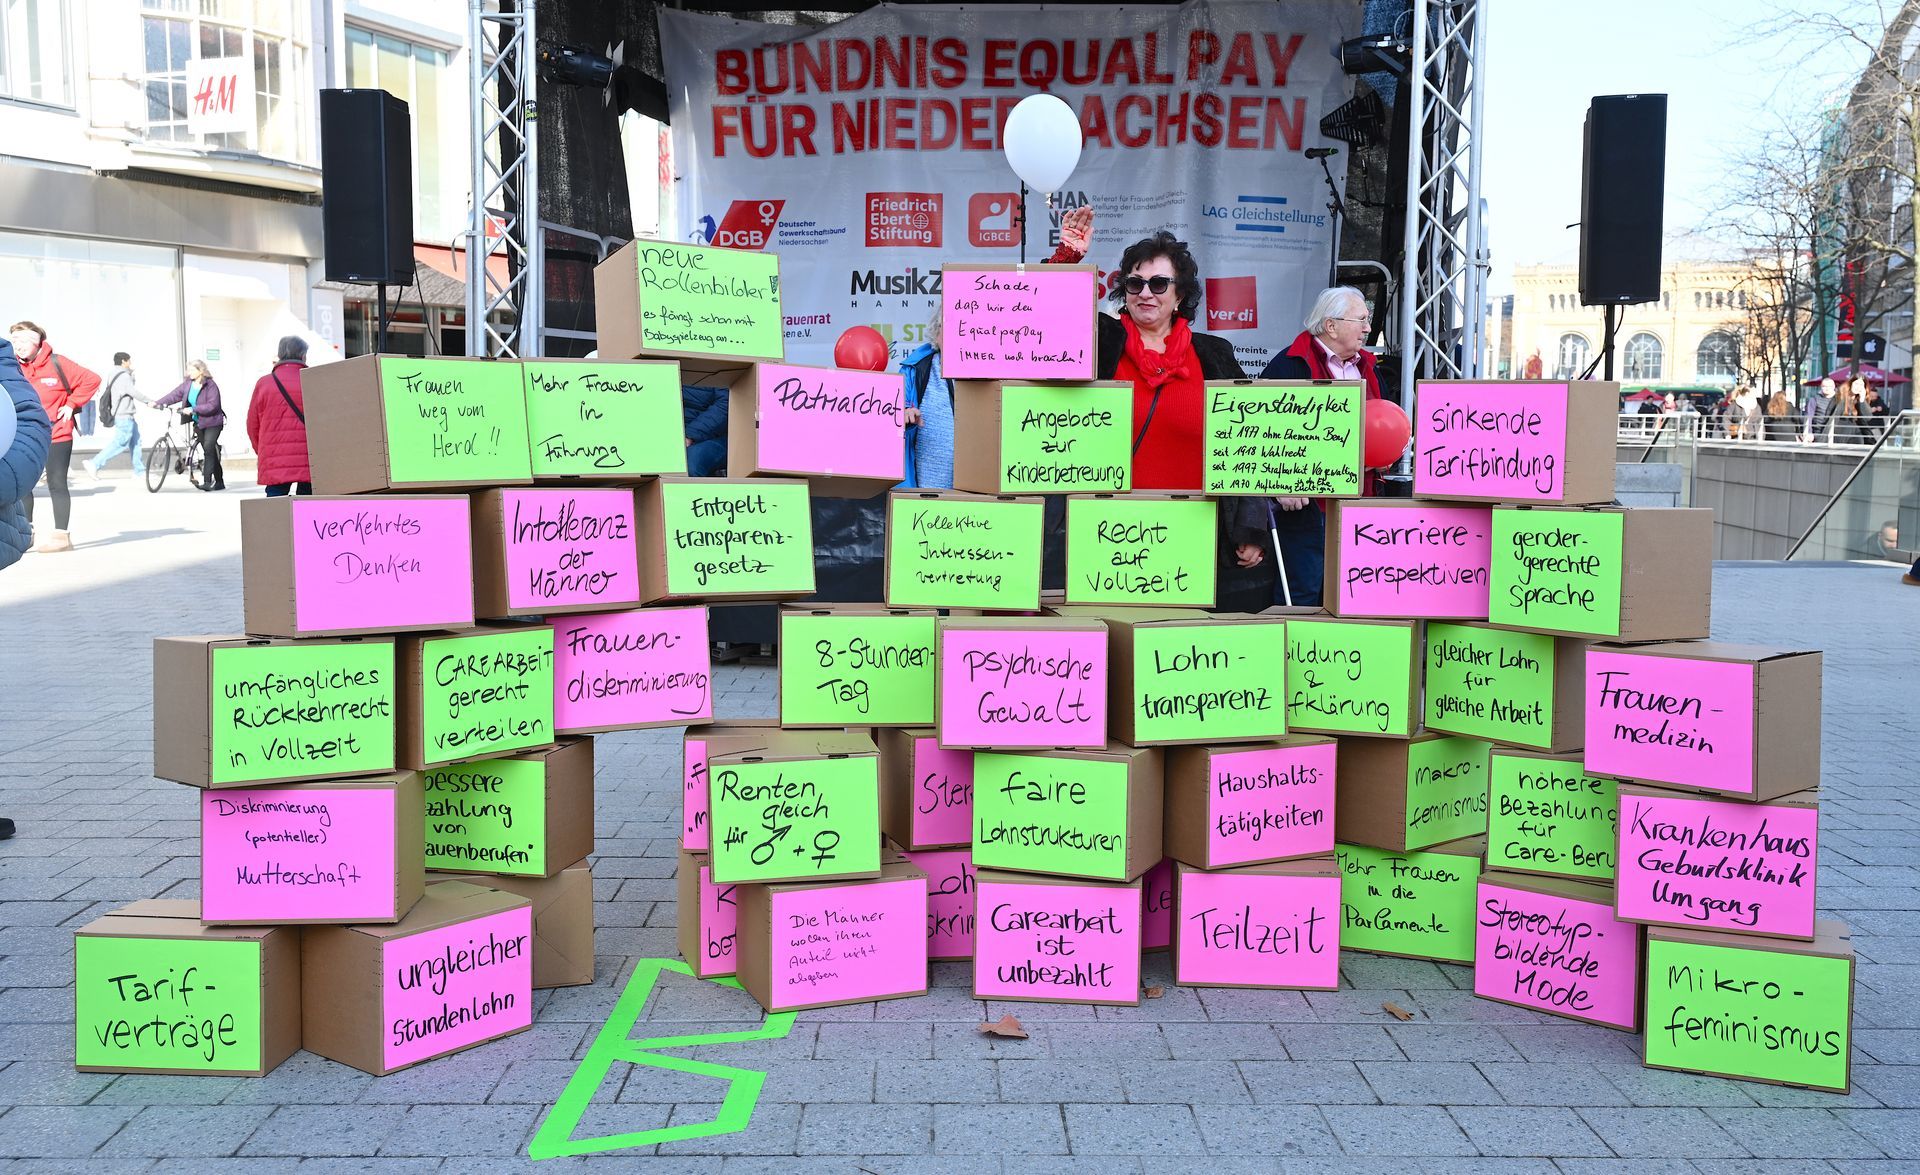 H&M
BÜNDNIS EQUAL PAY
FÜR NIEDE ACHSEN
DGB
Deutscher
Gewerkschaftsbund
Niedersachsen
Friedrich
Ebert
Stiftung
IGBCE
HAN
Referat für Frauen und Gleich-
stellung der Landeshauptstadt
Hannover
Team Gleichstellung der Region
Hannover
LAG Gleichstellung
MusikZ
HANN
ver.di
neue
Rollenbilder!
es fängt schon mit
Babyspielzeug an...
Schade,
daß wir den
Equal pay Day
IMMER noch brauchen!
Frauen
weg vom
Herd!!
Mehr Frauen
in
Führung
Patriarchat
Angebote
zur
Kinderbetreuung
Eigenständigkeit
seit 1977 ohne Ehemann Beruf
seit 1918 Wahlrecht
seit 1997 Strafbarkeit Vergewaltigg
in der Ehe
seit 1970 Aufhebung
sinkende
Tarifbindung
verkehrtes
Denken
Intolleranz
der
Männer
Entgelt-
transparenz-
gesetz
Kollektive
Interessen-
vertretung
Recht
auf
Vollzeit
Karriere-
perspektiven
gender-
gerechte
Sprache
umfängliches
Rückkehrrecht
in Vollzeit
CAREARBEIT
gerecht
verteilen
Frauen-
diskriminierung
8-Stunden-
Tag
psychische
Gewalt
Lohn-
transparenz
ildung
&
fklärung
gleicher Lohn
für
gleiche Arbeit
Frauen-
medizin
Diskriminierung
(potentieller)
Mutterschaft
bessere
zahlung
von
auenberufen"
Renten
gleich
für ♂ + ♀
Ster
faire
Lohnstrukturen
Haushalts-
tätigkeiten
Makro-
feminismus
höhere
Bezahlung
für
Care-Beru
Krankenhaus
Geburtsklinik
Umgang
Tarif-
verträge
ungleicher
Stundenlohn
K
bet
Die Männer
wollen ihren
Anteil nicht
abgeben
Loh
skrim
Carearbeit
ist
unbezahlt
Teilzeit
Mehr Frauen
in die
Parlamente
Stereotyp-
bildende
Mode
Mikro-
feminismus